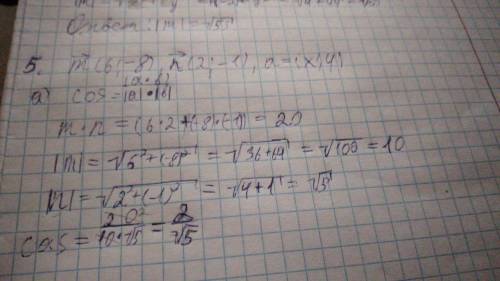 Ответ: |m| = √55
5. m⃗(6;-8), n⃗(2;-1), a = (x;4)
а) cos = |a·b| / |a|·|b|
m·n = (6·2+(-8)·(-1)) = 20
|m| = √6²+(-8)² = √36+64 = √100 = 10
|n| = √2²+(-1)² = √4+1 = √5
cos = 20 / 10·√5 = 2 / √5